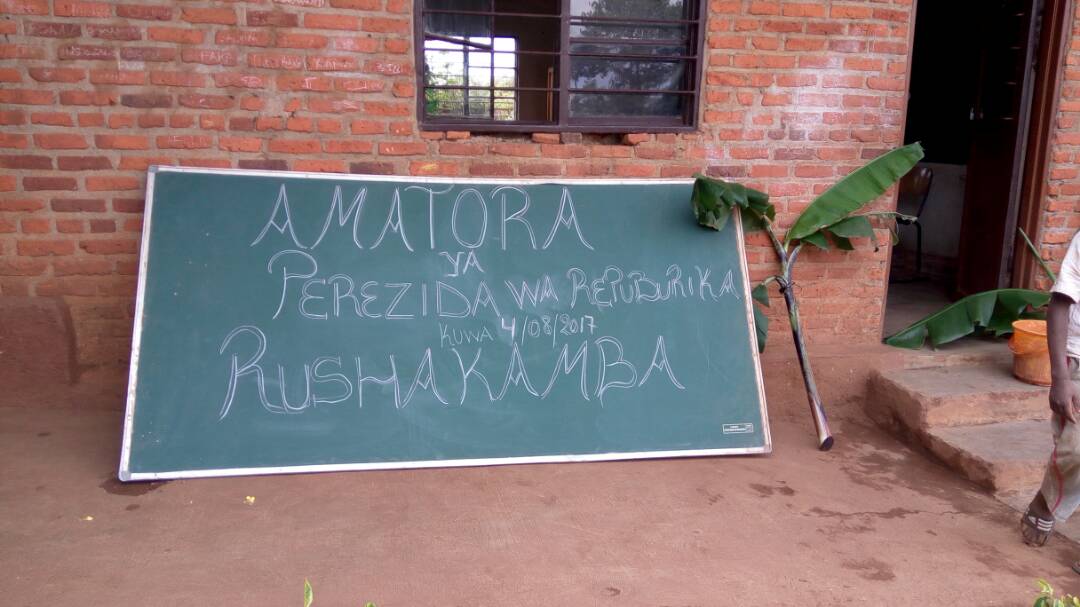 AMATORA
YA
PEREZIDA WA REPUBURIKA
KUWA 4/08/2017
RUSHAKAMBA